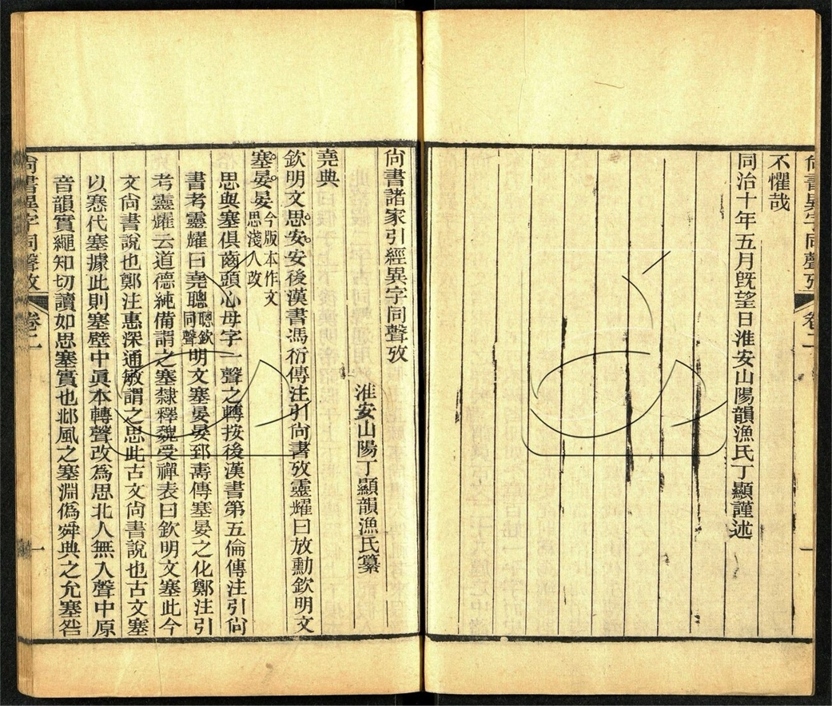 尙書異字同聲攷 卷二
不懼哉
同治十年五月旣望日淮安山陽韻漁氏丁顯謹述
一
尙書諸家引經異字同聲攷
淮安山陽丁顯韻漁氏纂
堯典
欽明文思安安後漢書馮衍傳注引尙書攷靈耀曰放勳欽明文
塞晏晏今版本作文思淺人改
思與塞俱齒頭心母字一聲之轉按後漢書第五倫傳注引尙
書考靈耀曰堯聰聰欽同聲明文塞晏晏郅壽傳塞晏之化鄭注引
考靈耀云道德純備謂之塞隸釋魏受禪表曰欽明文塞此今
文尙書說也鄭注惠深通敏謂之思此古文尙書說也古文塞
以寋代塞據此則塞壁中眞本轉聲改爲思北人無入聲中原
音韻實繩知切讀如思塞實也邶風之塞淵僞舜典之允塞皆
尙書異字同聲攷 卷二
一